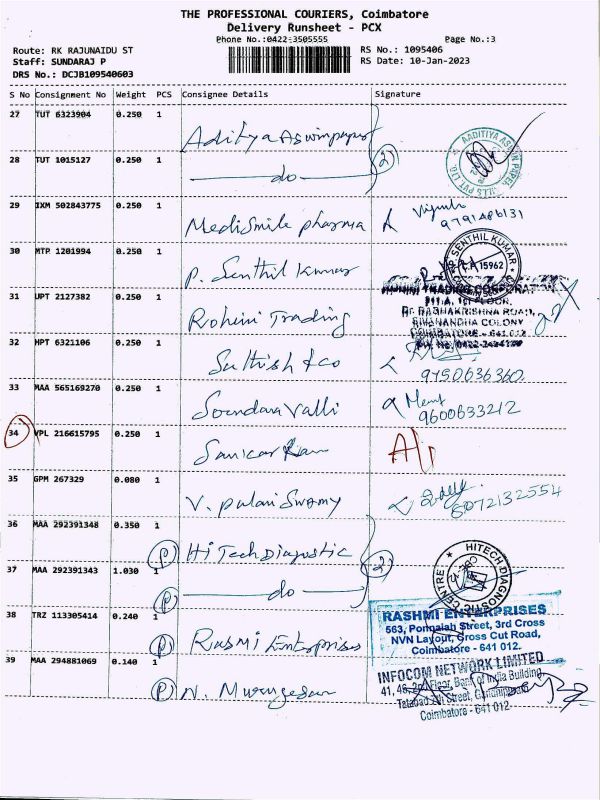 THE PROFESSIONAL COURIERS, Coimbatore
Delivery Runsheet - PCX
Phone No.:0422-3505555 Page No.:3
Route: RK RAJUNAIDU ST RS No.: 1095406
Staff: SUNDARAJ P RS Date: 10-Jan-2023
DRS No.: DCJB109540603
S No Consignment No Weight PCS Consignee Details Signature
27 TUT 6323904 0.250 1
28 TUT 1015127 0.250 1 do (2)
29 IXM 502843775 0.250 1 MediSmile pharma 9791486131
30 MTP 1201994 0.250 1 P. Senthil Kumar
SENTHIL KUMAR
15962
31 UPT 2127382 0.250 1 Rohini Trading
ROHINI TRADING CORPORATION
RADHAKRISHNA ROAD,
SIVANANDHA COLONY
COIMBATORE - 641 012.
32 HPT 6321106 0.250 1 Sathish & co 9750636360
33 MAA 565169270 0.250 1 Soundara Valli 9600633212
34 VPL 216615795 0.250 1
35 GPM 267329 0.080 1 V. Palani Swamy 8072132554
36 MAA 292391348 0.350 1 (P) Hi Tech Diagnostic
37 MAA 292391343 1.030 1 (P) do (2)
HITECH DIAGNOSTIC CENTRE
38 TRZ 113305414 0.240 1 (P) Rasmi Enterprises
RASHMI ENTERPRISES
563, Ponnaiah Street, 3rd Cross
NVN Layout, Cross Cut Road,
Coimbatore - 641 012.
39 MAA 294881069 0.140 1 (P) N. Murugesan
INFOCOM NETWORK LIMITED
Floor, Bank of India Building,
Tatabad Street, Gandhipuram
Coimbatore - 641 012.